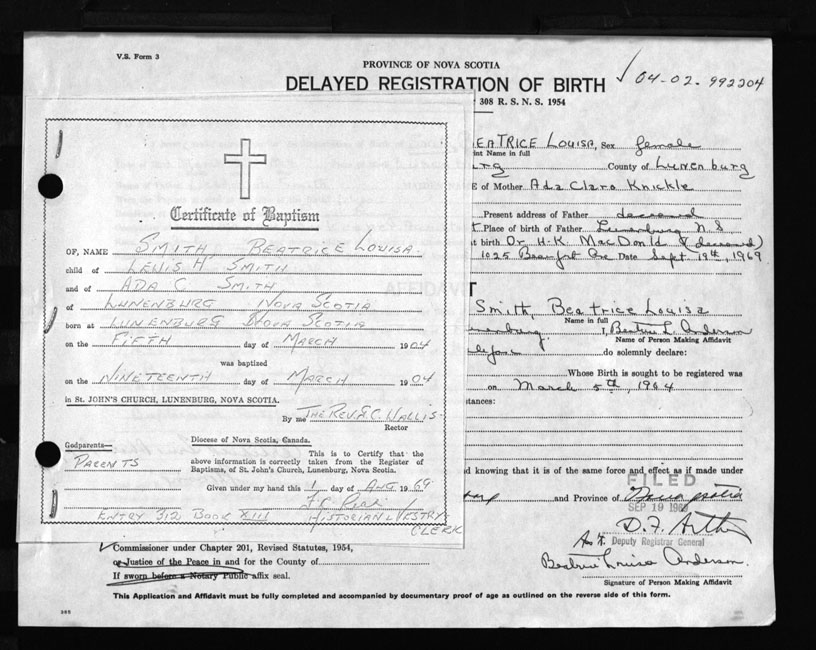 V.S. Form 3
PROVINCE OF NOVA SCOTIA
DELAYED REGISTRATION OF BIRTH
04-02-992204
308 R. S. N. S. 1954
Certificate of Baptism
OF, NAME SMITH BEATRICE LOUISA.
child of LEWIS H SMITH
and of ADA C SMITH
of LUNENBURG NOVA SCOTIA
born at LUNENBURG NOVA SCOTIA
on the FIFTH day of MARCH 1904
was baptized
on the NINETEENTH day of MARCH 1904
in St. JOHN'S CHURCH, LUNENBURG, NOVA SCOTIA.
By me THE REV. WALLIS
Rector
Godparents—
PARENTS
Diocese of Nova Scotia, Canada.
This is to Certify that the
above information is correctly taken from the Register of
Baptisms, of St. John's Church, Lunenburg, Nova Scotia.
Given under my hand this 1 day of AUG 1969
ENTRY 312 BOOK XIII HISTORIAN & VESTRY
CLERK
EATRICE LOUISA, Sex female
rint Name in full
rg County of Lunenburg
E of Mother Ada Clara Knickle
Present address of Father deceased
Place of birth of Father Lunenburg N.S
t birth Dr H.K. MacDonald (deceased)
1025 Beaufort Ave Date Sept 19th, 1969
T
Smith, Beatrice Louisa
Name in full
nenburg. I, Beatrice L. Anderson
Name of Person Making Affidavit
do solemnly declare:
Whose Birth is sought to be registered was
on March 5th, 1904
stances:
d knowing that it is of the same force and effect as if made under
and Province of Nova Scotia
FILED
SEP 19 1969
Deputy Registrar General
Beatrice Louisa Anderson.
Signature of Person Making Affidavit
Commissioner under Chapter 201, Revised Statutes, 1954,
or Justice of the Peace in and for the County of
If sworn before a Notary Public affix seal.
This Application and Affidavit must be fully completed and accompanied by documentary proof of age as outlined on the reverse side of this form.